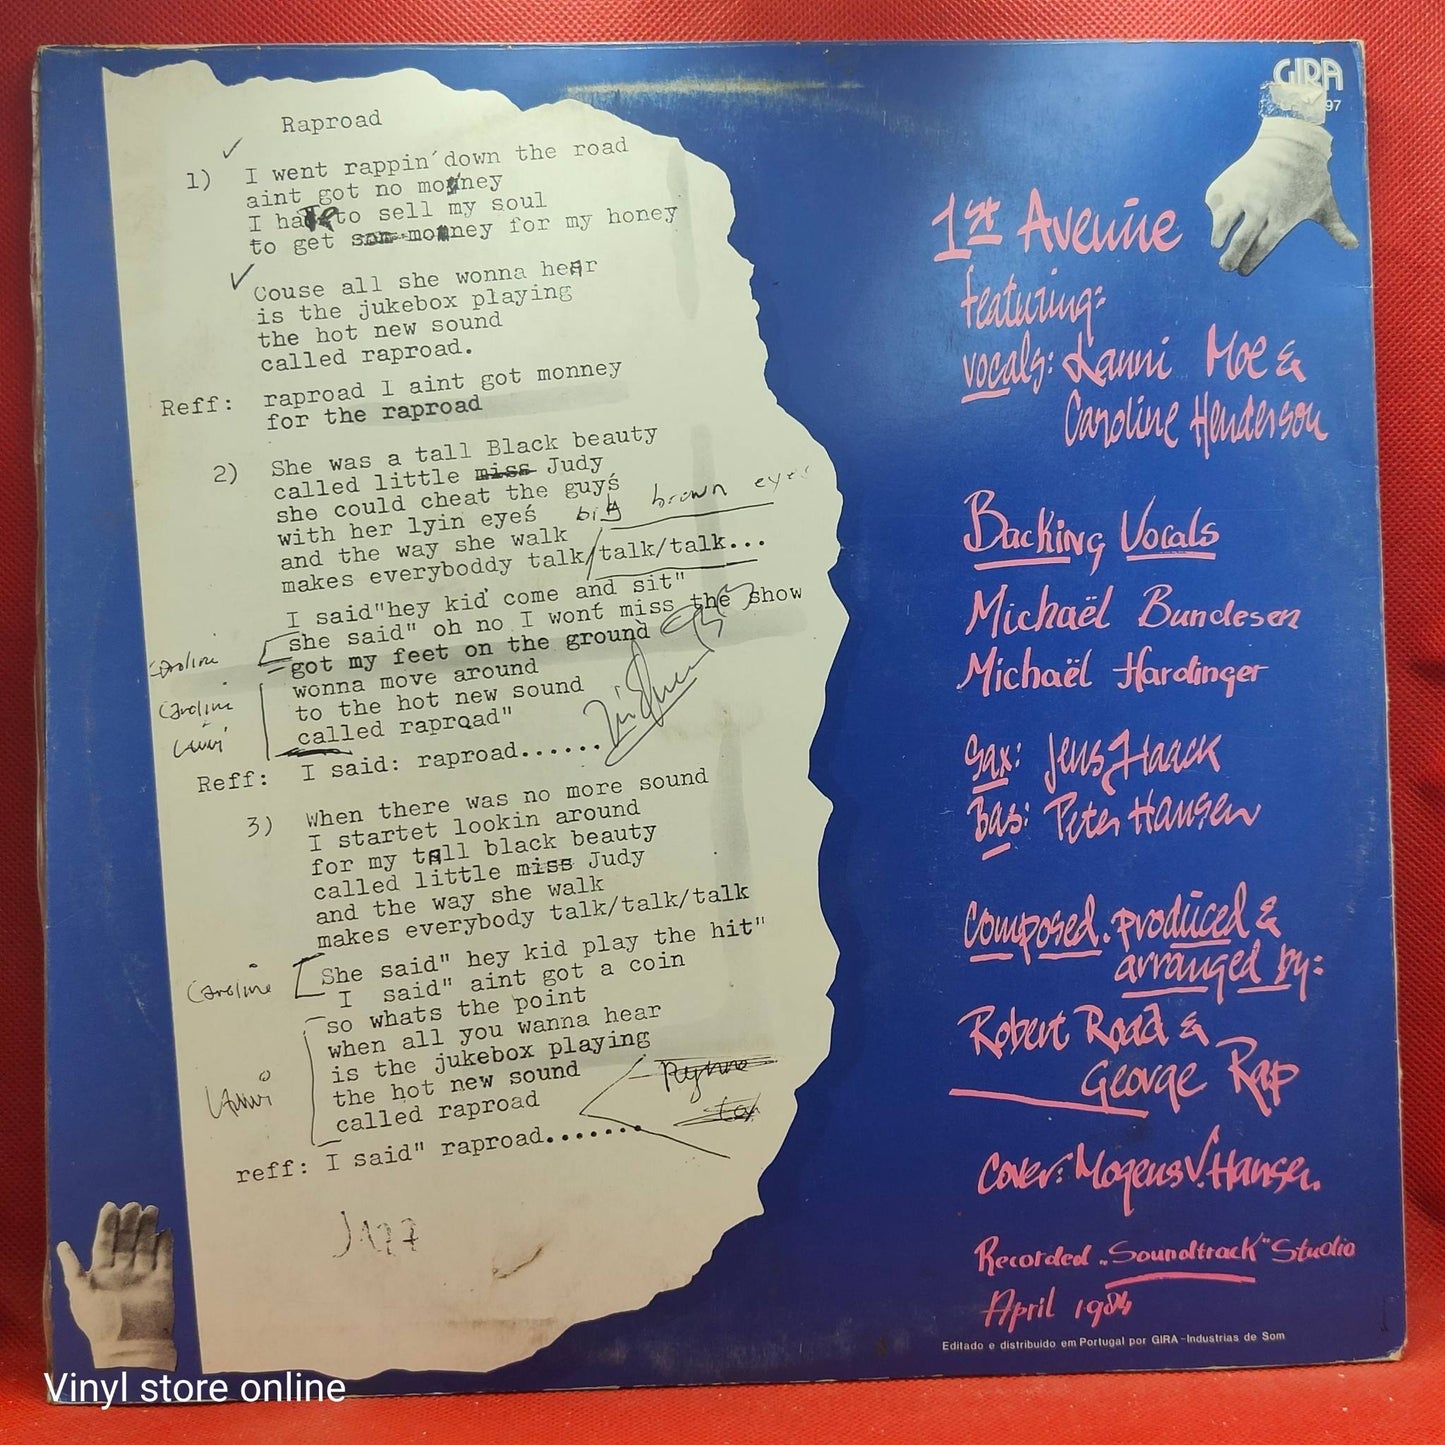 Raproad
1) I went rappin´down the road
aint got no monney
I have to sell my soul
to get monney for my honey
Couse all she wonna hear
is the jukebox playing
the hot new sound
called raproad.
Reff: raproad I aint got monney
for the raproad
2) She was a tall Black beauty
called little miss Judy
she could cheat the guyś
with her lyin eyeś big brown eyes
and the way she walk
makes everyboddy talk/talk/talk...
I said"hey kid' come and sit"
she said" oh no I wont miss the show
Caroline got my feet on the ground
wonna move around
Caroline to the hot new sound
+ Lanni called raproad"
Reff: I said: raproad......
3) When there was no more sound
I startet lookin around
for my tall black beauty
called little miss Judy
and the way she walk
makes everybody talk/talk/talk
Caroline She said" hey kid play the hit"
I said" aint got a coin
so whats the point
when all you wanna hear
is the jukebox playing
Lanni the hot new sound
called raproad
reff: I said" raproad.......
GIRA
97
1st Avenue
featuring:
vocals: Lanni Moe &
Caroline Henderson
Backing Vocals
Michaël Bundesen
Michaël Hardinger
Sax: Jens Haack
Bas: Peter Hansen
Composed. produced &
arranged by:
Robert Road &
George Rap
Cover: Mogens V. Hansen.
Recorded „Soundtrack" Studio
April 1984
Editado e distribuido em Portugal por GIRA-Industrias de Som
Vinyl store online